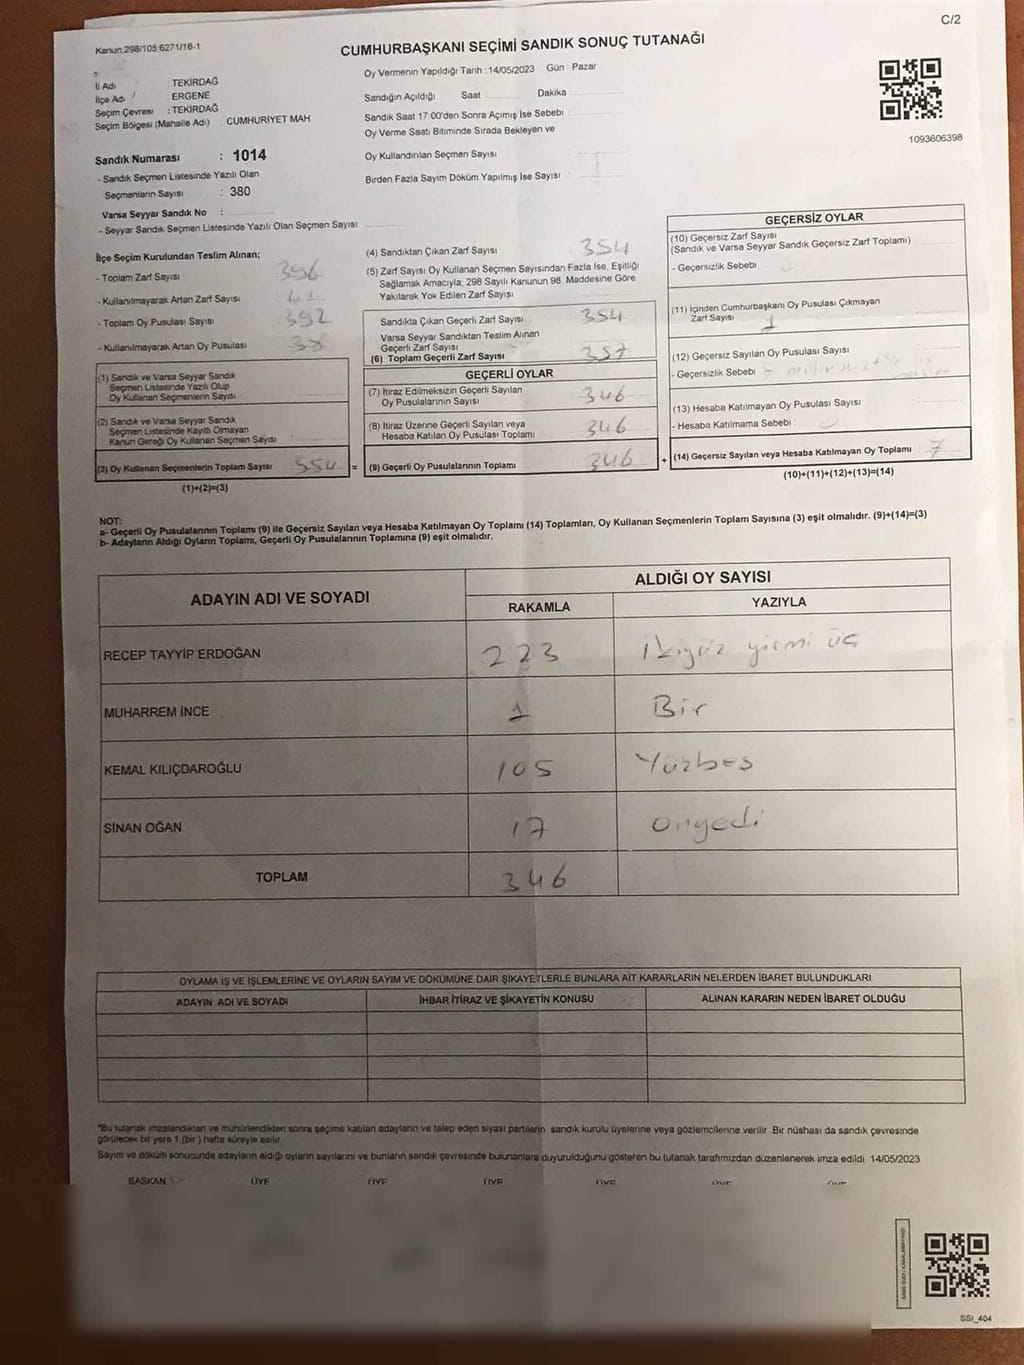 C/2
Kanun:298/105;6271/16-1
CUMHURBAŞKANI SEÇİMİ SANDIK SONUÇ TUTANAĞI
İl Adı : TEKİRDAĞ
İlçe Adı : ERGENE
Seçim Çevresi : TEKİRDAĞ
Seçim Bölgesi (Mahalle Adı) : CUMHURİYET MAH
Sandık Numarası : 1014
- Sandık Seçmen Listesinde Yazılı Olan
Seçmenlerin Sayısı : 380
Varsa Seyyar Sandık No :
- Seyyar Sandık Seçmen Listesinde Yazılı Olan Seçmen Sayısı:
Oy Vermenin Yapıldığı Tarih :14/05/2023 Gün : Pazar
Sandığın Açıldığı Saat Dakika
Sandık Saat 17:00'den Sonra Açımış İse Sebebi
Oy Verme Saati Bitiminde Sırada Bekleyen ve
Oy Kullandırılan Seçmen Sayısı
Birden Fazla Sayım Döküm Yapılmış İse Sayısı
1093606398
İlçe Seçim Kurulundan Teslim Alınan;
- Toplam Zarf Sayısı 396
- Kullanılmayarak Artan Zarf Sayısı
- Toplam Oy Pusulası Sayısı 392
- Kullanılmayarak Artan Oy Pusulası 38
(1) Sandık ve Varsa Seyyar Sandık
Seçmen Listesinde Yazılı Olup
Oy Kullanan Seçmenlerin Sayısı
(2) Sandık ve Varsa Seyyar Sandık
Seçmen Listesinde Kayıtlı Olmayan
Kanun Gereği Oy Kullanan Seçmen Sayısı
(3) Oy Kullanan Seçmenlerin Toplam Sayısı 354 =
(1)+(2)=(3)
(4) Sandıktan Çıkan Zarf Sayısı 354
(5) Zarf Sayısı Oy Kullanan Seçmen Sayısından Fazla İse, Eşitliği
Sağlamak Amacıyla, 298 Sayılı Kanunun 98. Maddesine Göre
Yakılarak Yok Edilen Zarf Sayısı
Sandıkta Çıkan Geçerli Zarf Sayısı 354
Varsa Seyyar Sandıktan Teslim Alınan
Geçerli Zarf Sayısı
(6) Toplam Geçerli Zarf Sayısı 357
GEÇERLİ OYLAR
(7) İtiraz Edilmeksizin Geçerli Sayılan
Oy Pusulalarının Sayısı 346
(8) İtiraz Üzerine Geçerli Sayılan veya
Hesaba Katılan Oy Pusulası Toplamı 346
(9) Geçerli Oy Pusulalarının Toplamı 346 +
GEÇERSİZ OYLAR
(10) Geçersiz Zarf Sayısı
(Sandık ve Varsa Seyyar Sandık Geçersiz Zarf Toplamı)
- Geçersizlik Sebebi
(11) İçinden Cumhurbaşkanı Oy Pusulası Çıkmayan
Zarf Sayısı 1
(12) Geçersiz Sayılan Oy Pusulası Sayısı
- Geçersizlik Sebebi
(13) Hesaba Katılmayan Oy Pusulası Sayısı
- Hesaba Katılmama Sebebi :
(14) Geçersiz Sayılan veya Hesaba Katılmayan Oy Toplamı 7
(10)+(11)+(12)+(13)=(14)
NOT:
a- Geçerli Oy Pusulalarının Toplamı (9) ile Geçersiz Sayılan veya Hesaba Katılmayan Oy Toplamı (14) Toplamları, Oy Kullanan Seçmenlerin Toplam Sayısına (3) eşit olmalıdır. (9)+(14)=(3)
b- Adayların Aldığı Oyların Toplamı, Geçerli Oy Pusulalarının Toplamına (9) eşit olmalıdır.
ADAYIN ADI VE SOYADI ALDIĞI OY SAYISI
RAKAMLA YAZIYLA
RECEP TAYYİP ERDOĞAN 223 ikiyüz yirmi üç
MUHARREM İNCE 1 Bir
KEMAL KILIÇDAROĞLU 105 Yüzbeş
SİNAN OĞAN 17 Onyedi
TOPLAM 346
OYLAMA İŞ VE İŞLEMLERİNE VE OYLARIN SAYIM VE DÖKÜMÜNE DAİR ŞİKAYETLERLE BUNLARA AİT KARARLARIN NELERDEN İBARET BULUNDUKLARI
ADAYIN ADI VE SOYADI İHBAR İTİRAZ VE ŞİKAYETİN KONUSU ALINAN KARARIN NEDEN İBARET OLDUĞU
*Bu tutanak imzalandıktan ve mühürlendikten sonra seçime katılan adayların ve talep eden siyasi partilerin sandık kurulu üyelerine veya gözlemcilerine verilir. Bir nüshası da sandık çevresinde
görülecek bir yere 1 (bir ) hafta süreyle asılır.
Sayım ve döküm sonucunda adayların aldığı oyların sayılarını ve bunların sandık çevresinde bulunanlara duyurulduğunu gösteren bu tutanak tarafımızdan düzenlenerek imza edildi. 14/05/2023
BAŞKAN ÜYE ÜYE ÜYE ÜYE ÜYE ÜYE
SSI_404